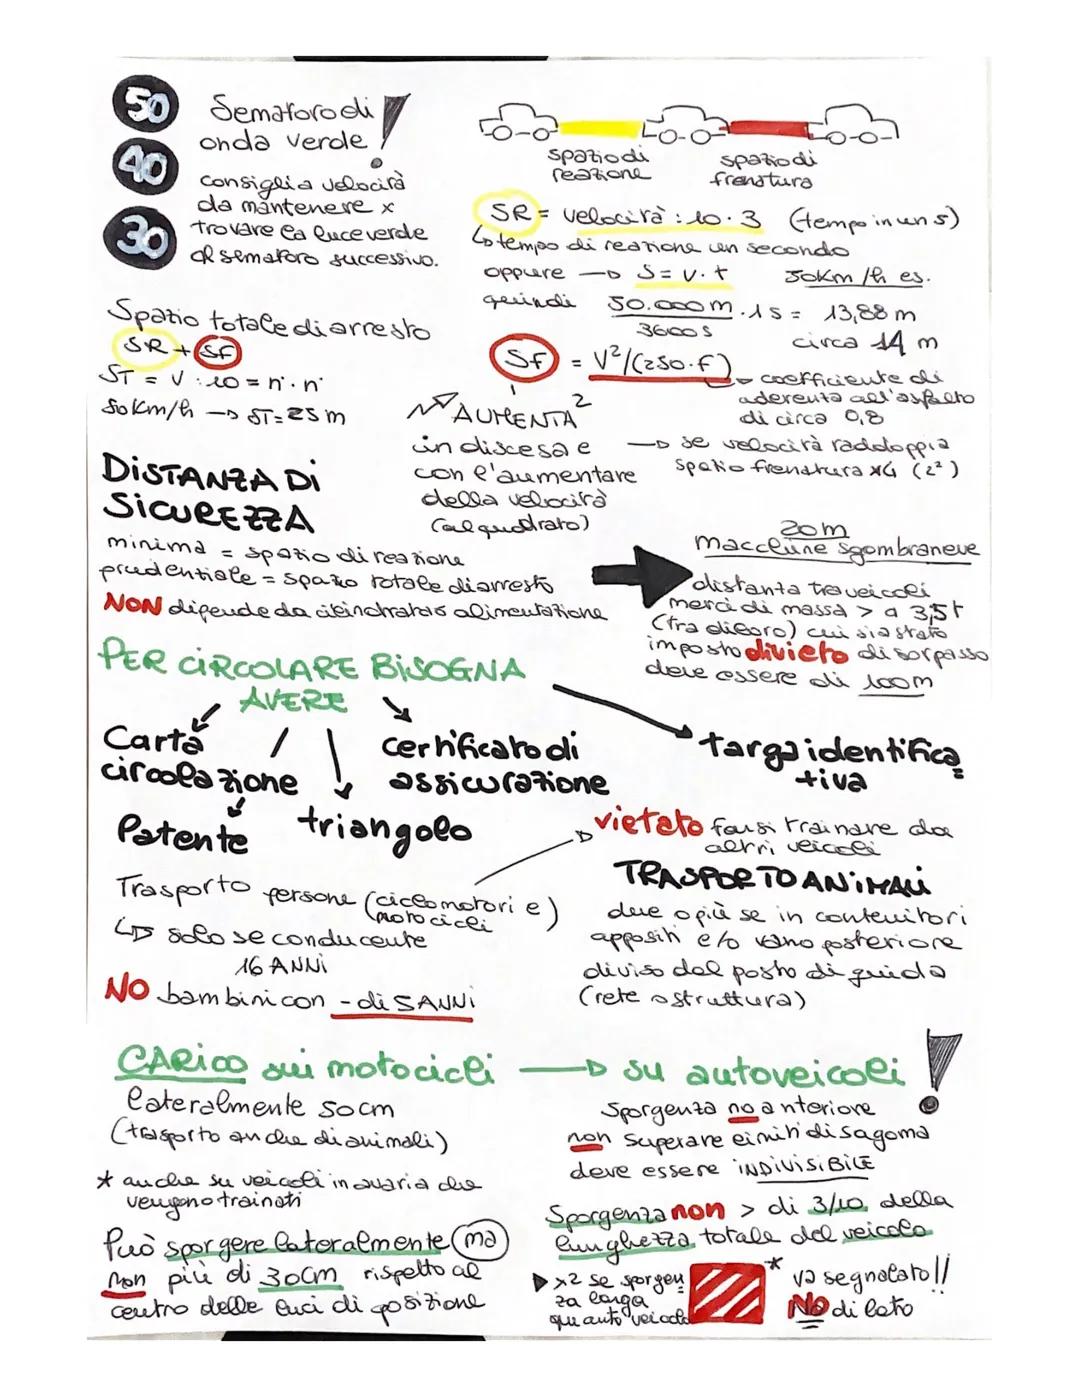 50
40
30
Semaforo di
onda verde !
consiglia velocità
da mantenere x
trovare la luce verde
al semaforo successivo.
spazio di
reazione
spazio di
frenatura
SR = velocità : 10 · 3 (tempo in un s)
↳ tempo di reazione un secondo
oppure → S = v · t 50Km/h es.
quindi 50.000m / 3600s · 1s = 13,88 m
circa 14 m
Spazio totale di arresto
SR + SF
ST = V : 10 = n° · n°
50Km/h → ST = 25 m
Sf = V²/(250·f)
→ coefficiente di
aderenza all'asfalto
di circa 0,8
AUMENTA²
in discesa e
con l'aumentare
della velocità
(al quadrato)
→ se velocità raddoppia
spazio frenatura x4 (2²)
DISTANZA DI
SICUREZZA
minima = spazio di reazione
prudenziale = spazio totale di arresto
NON dipende da cilindrata o alimentazione
20m
macchine sgombraneve
distanza tra veicoli
merci di massa > a 3,5t
(tra di loro) cui sia stato
imposto divieto di sorpasso
deve essere di 100m
PER CIRCOLARE BISOGNA
AVERE
Carta
circolazione
Patente
triangolo
certificato di
assicurazione
targa identifica
tiva
Trasporto persone (ciclomotori e
motocicli)
↳ solo se conducente
16 ANNI
NO bambini con - di 5 ANNI
vietato farsi trainare da
altri veicoli
TRASPORTO ANIMALI
due o più se in contenitori
appositi e/o vano posteriore
diviso dal posto di guida
(rete o struttura)
CARICO sui motocicli → su autoveicoli !
lateralmente 50cm
(trasporto anche di animali)
* anche su veicoli in avaria che
vengono trainati
Può sporgere lateralmente ma
non più di 30cm rispetto al
centro delle luci di posizione
Sporgenza no anteriore
non superare limiti di sagoma
deve essere INDIVISIBILE
Sporgenza non > di 3/10 della
lunghezza totale del veicolo
x2 se sporgen
za larga
* va segnalato!!
NO di lato